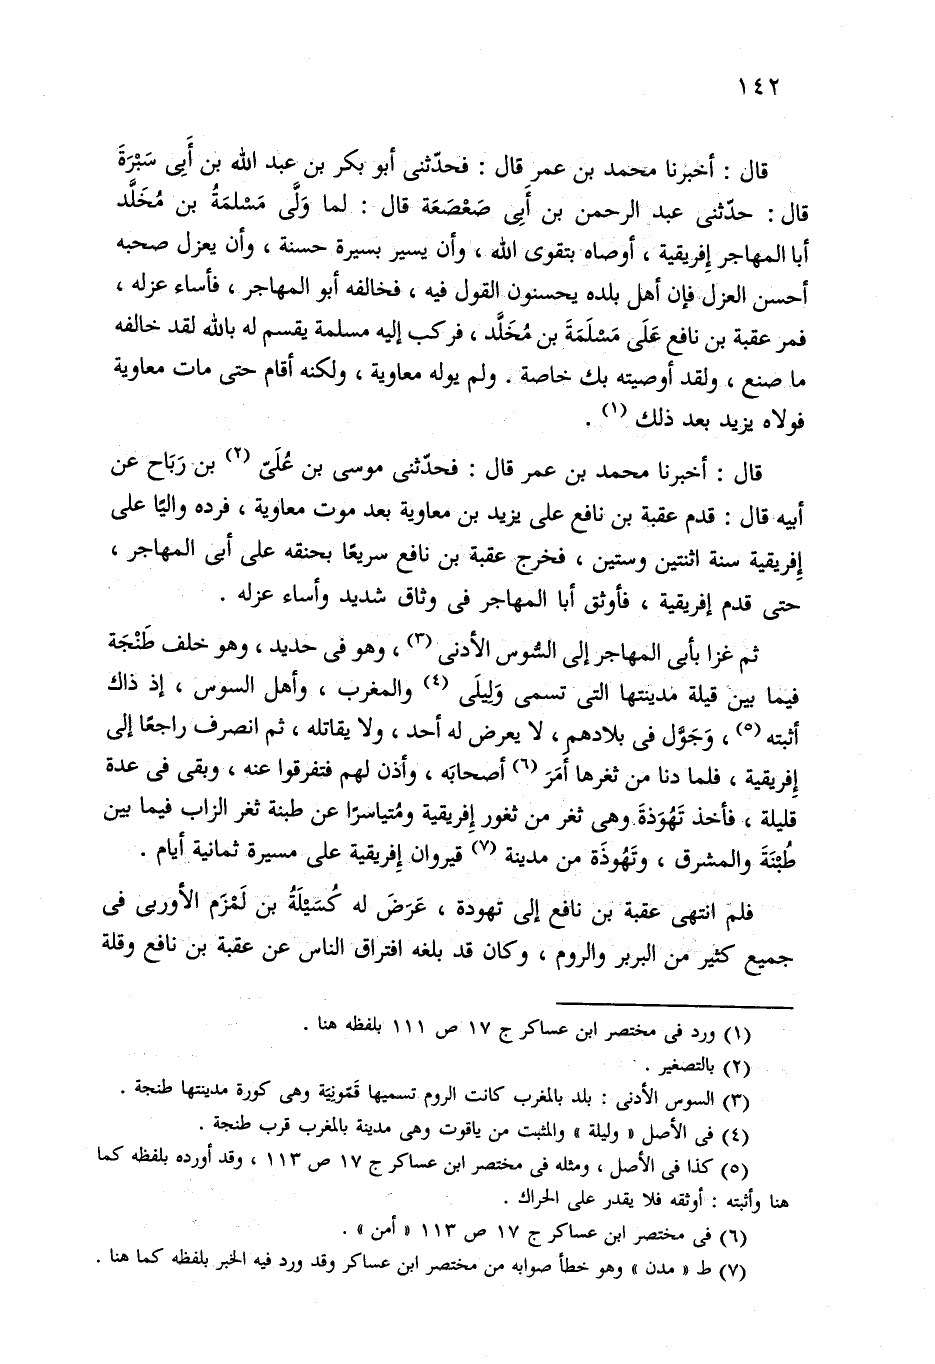 ١٤٢
قال : أخبرنا محمد بن عمر قال : فحدّثنى أبو بكر بن عبد الله بن أَبِى سَبْرَةَ
قال : حدّثنى عبد الرحمن بن أَبِى صَعْصَعَة قال : لما وَلَّى مَسْلمَةُ بن مُخَلَّد
أبا المهاجر إفريقية ، أوصاه بتقوى الله ، وأن يسير بسيرة حسنة ، وأن يعزل صحبه
أحسن العزل فإن أهل بلده يحسنون القول فيه ، فخالفه أبو المهاجر ، فأساء عزله ،
فمر عقبة بن نافع عَلَى مَسْلَمَةَ بن مُخَلَّد ، فركب إليه مسلمة يقسم له بالله لقد خالفه
ما صنع ، ولقد أوصيته بك خاصة . ولم يوله معاوية ، ولكنه أقام حتى مات معاوية
فولاه يزيد بعد ذلك (١) .
قال : أخبرنا محمد بن عمر قال : فحدّثنى موسى بن عُلَىّ (٢) بن رَبَاح عن
أبيه قال : قدم عقبة بن نافع على يزيد بن معاوية بعد موت معاوية ، فرده واليًا على
إفريقية سنة اثنتين وستين ، فخرج عقبة بن نافع سريعًا بحنقه على أبى المهاجر ،
حتى قدم إفريقية ، فأوثق أبا المهاجر فى وثاق شديد وأساء عزله .
ثم غزا بأبى المهاجر إلى السُّوس الأدنى (٣) ، وهو فى حديد ، وهو خلف طَنْجَة
فيما بين قيلة مدينتها التى تسمى وَلِيلَى (٤) والمغرب ، وأهل السوس ، إذ ذاك
أثبته (٥) ، وَجَوَّل فى بلادهم ، لا يعرض له أحد ، ولا يقاتله ، ثم انصرف راجعًا إلى
إفريقية ، فلما دنا من ثغرها أَمَرَ (٦) أصحابَه ، وأذن لهم فتفرقوا عنه ، وبقى فى عدة
قليلة ، فأخذ تَهُوَذةَ وهى ثغر من ثغور إفريقية ومُتياسرًا عن طبنة ثغر الزاب فيما بين
طُبْنَةَ والمشرق ، وتَهُوذَة من مدينة (٧) قيروان إفريقية على مسيرة ثمانية أيام .
فلم انتهى عقبة بن نافع إلى تهودة ، عَرَضَ له كُسَيْلَةُ بن لَمْزَم الأوربى فى
جميع كثير من البربر والروم ، وكان قد بلغه افتراق الناس عن عقبة بن نافع وقلة
(١) ورد فى مختصر ابن عساكر ج ١٧ ص ١١١ بلفظه هنا .
(٢) بالتصغير .
(٣) السوس الأدنى : بلد بالمغرب كانت الروم تسميها قَمّونِيَة وهى كورة مدينتها طنجة .
(٤) فى الأصل « وليلة » والمثبت من ياقوت وهى مدينة بالمغرب قرب طنجة .
(٥) كذا فى الأصل ، ومثله فى مختصر ابن عساكر ج ١٧ ص ١١٣ ، وقد أورده بلفظه كما
هنا وأثبته : أوثقه فلا يقدر على الحراك .
(٦) فى مختصر ابن عساكر ج ١٧ ص ١١٣ « أمن » .
(٧) ط « مدن » وهو خطأ صوابه من مختصر ابن عساكر وقد ورد فيه الخبر بلفظه كما هنا .